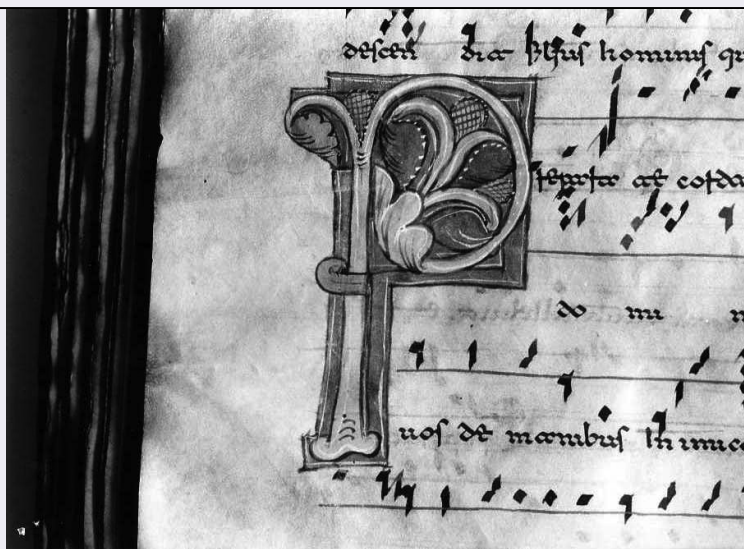 descen dit filius hominis
Preparate corda
do mi n
uos de manibus inimico